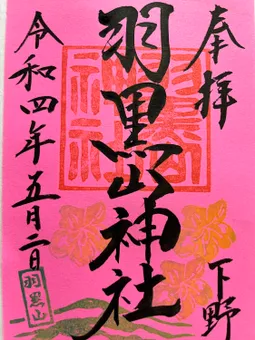 奉拝
下野
羽黒山神社
令和四年五月二日
羽黒山